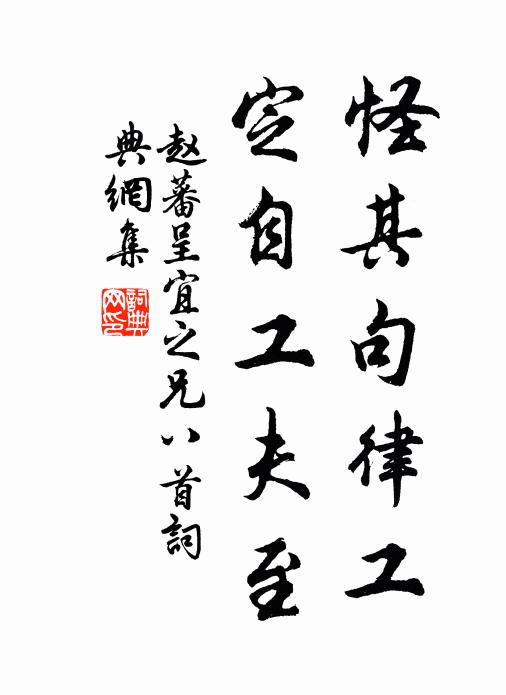 怪其句律工
定自工夫至
赵蕃呈宜之兄八首詞
典網集
詞典網印